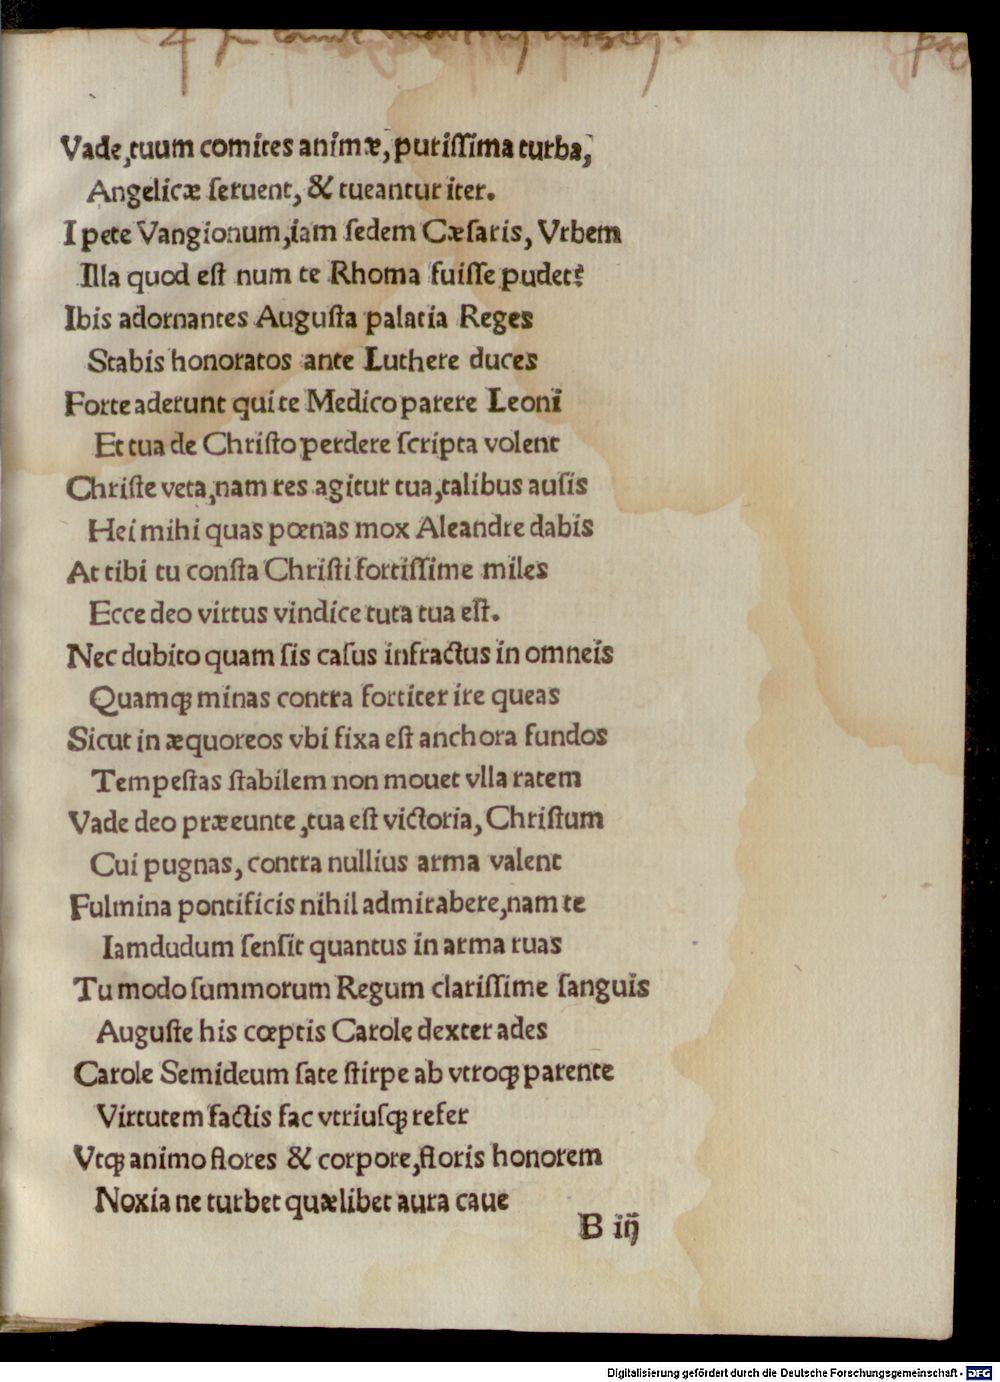 Vade,tuum comites animæ, puriſſima turba,
Angelicæ ſeruent, & tueantur iter.
I pete Vangionum,iam ſedem Cæſaris, Vrbem
Illa quod eſt num te Rhoma fuiſſe pudet?
Ibis adornantes Auguſta palatia Reges
Stabis honoratos ante Luthere duces
Forte aderunt qui te Medico parere Leoni
Et tua de Chriſto perdere ſcripta volent
Chriſte veta,nam res agitur tua,talibus auſis
Hei mihi quas pœnas mox Aleandre dabis
At tibi tu conſta Chriſti fortiſſime miles
Ecce deo virtus vindice tuta tua eſt.
Nec dubito quam ſis caſus infractus in omneis
Quamqꝫ minas contra fortiter ire queas
Sicut in æquoreos vbi fixa eſt anchora fundos
Tempeſtas ſtabilem non mouet vlla ratem
Vade deo præeunte,tua eſt victoria, Chriſtum
Cui pugnas, contra nullius arma valent
Fulmina pontificis nihil admirabere,nam te
Iamdudum ſenſit quantus in arma ruas
Tu modo ſummorum Regum clariſſime ſanguis
Auguſte his cœptis Carole dexter ades
Carole Semideum ſate ſtirpe ab vtroqꝫ parente
Virtutem factis fac vtriuſqꝫ refer
Vtqꝫ animo flores & corpore,floris honorem
Noxia ne turbet quælibet aura caue
B iij
Digitalisierung gefördert durch die Deutsche Forschungsgemeinschaft - DFG